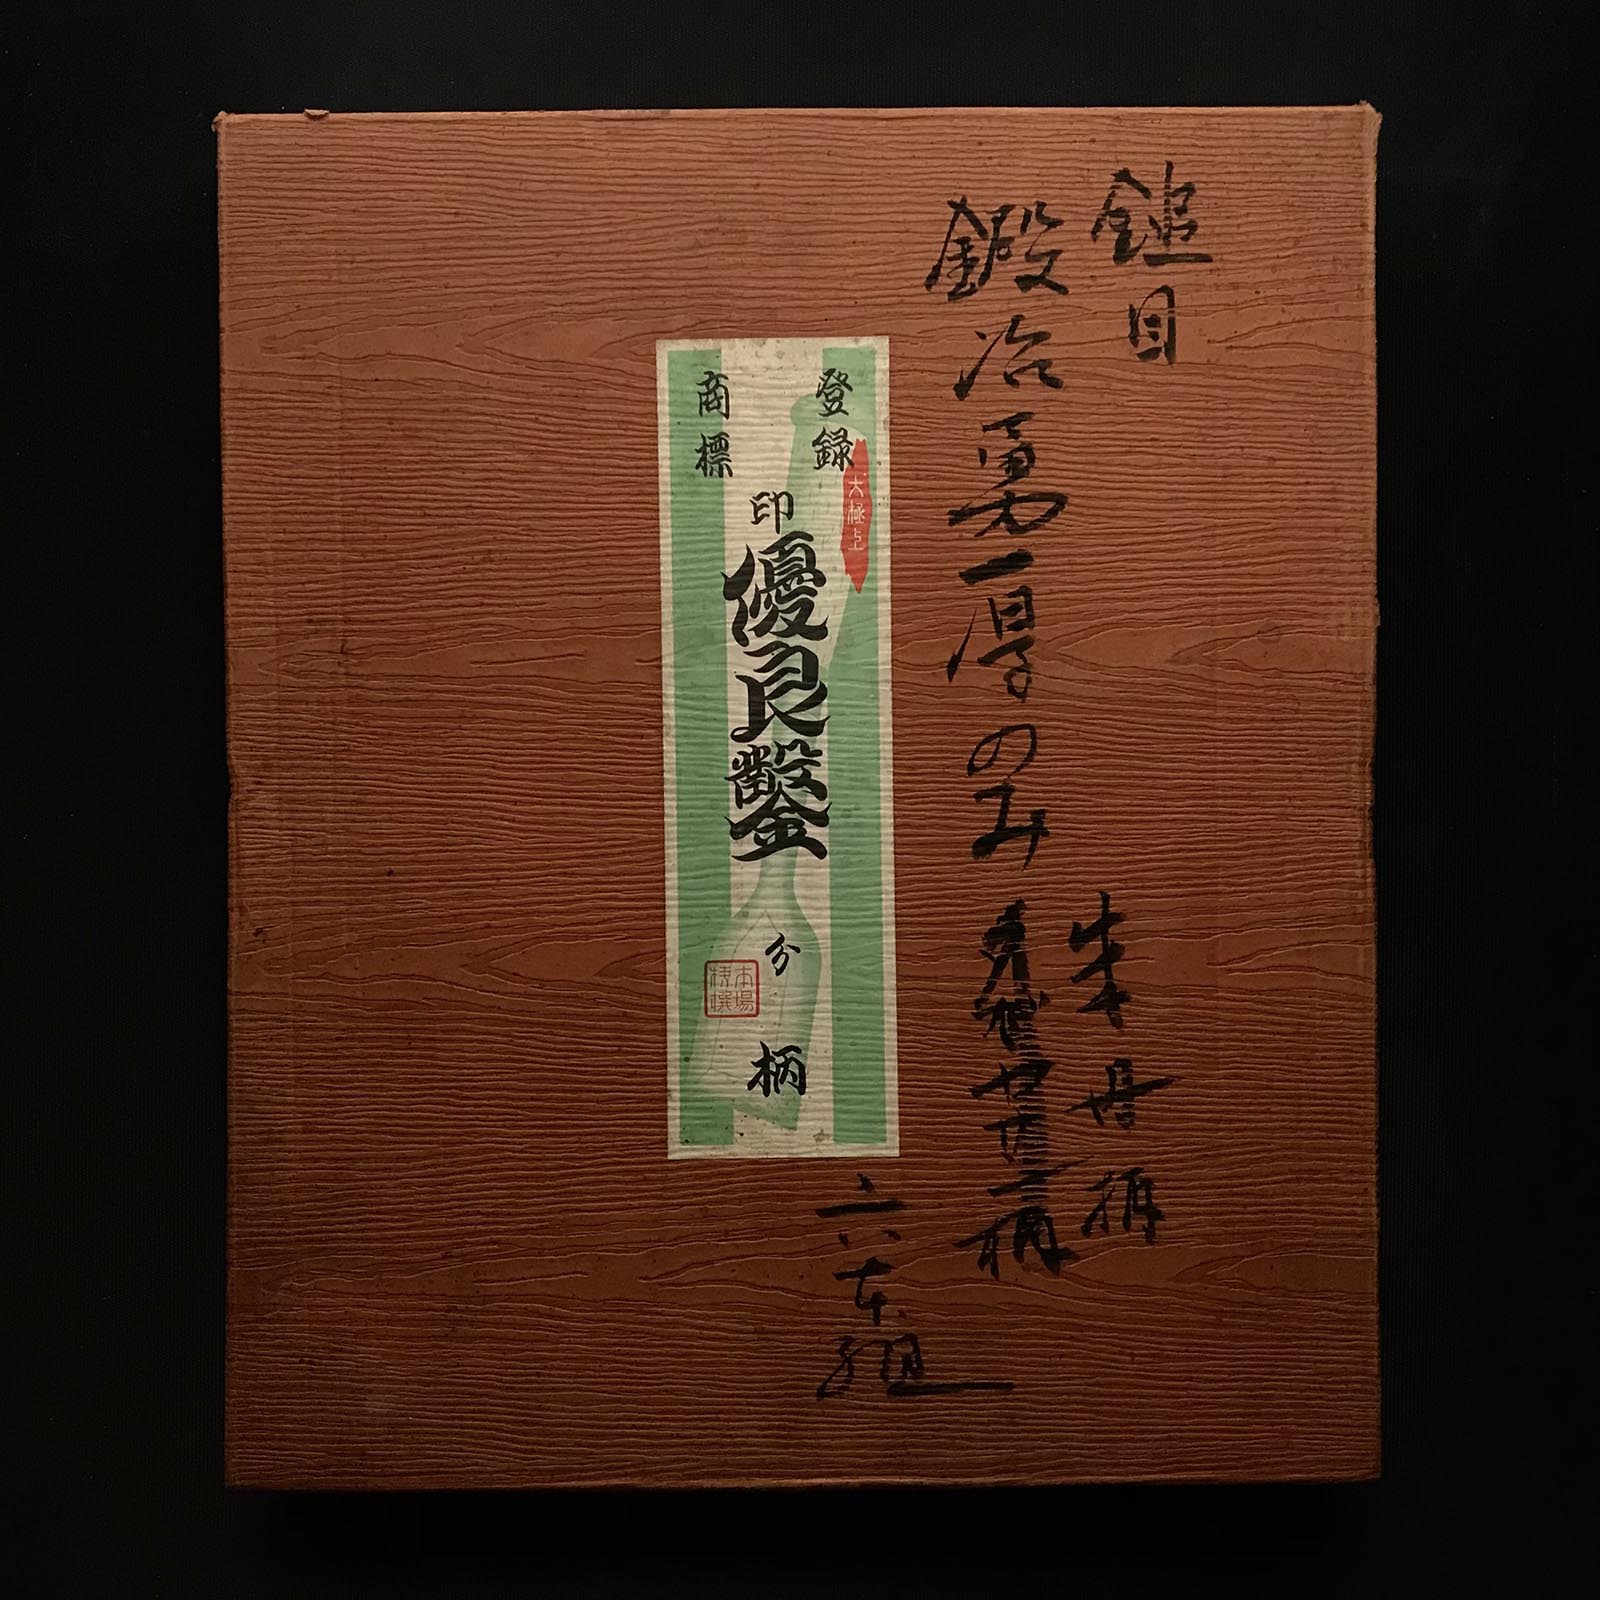 鎚目
鍛冶勇一厚のみ
朱丹柄
六本組
登録
商標
大極上
印
優良鑿
分
柄
本場
特撰